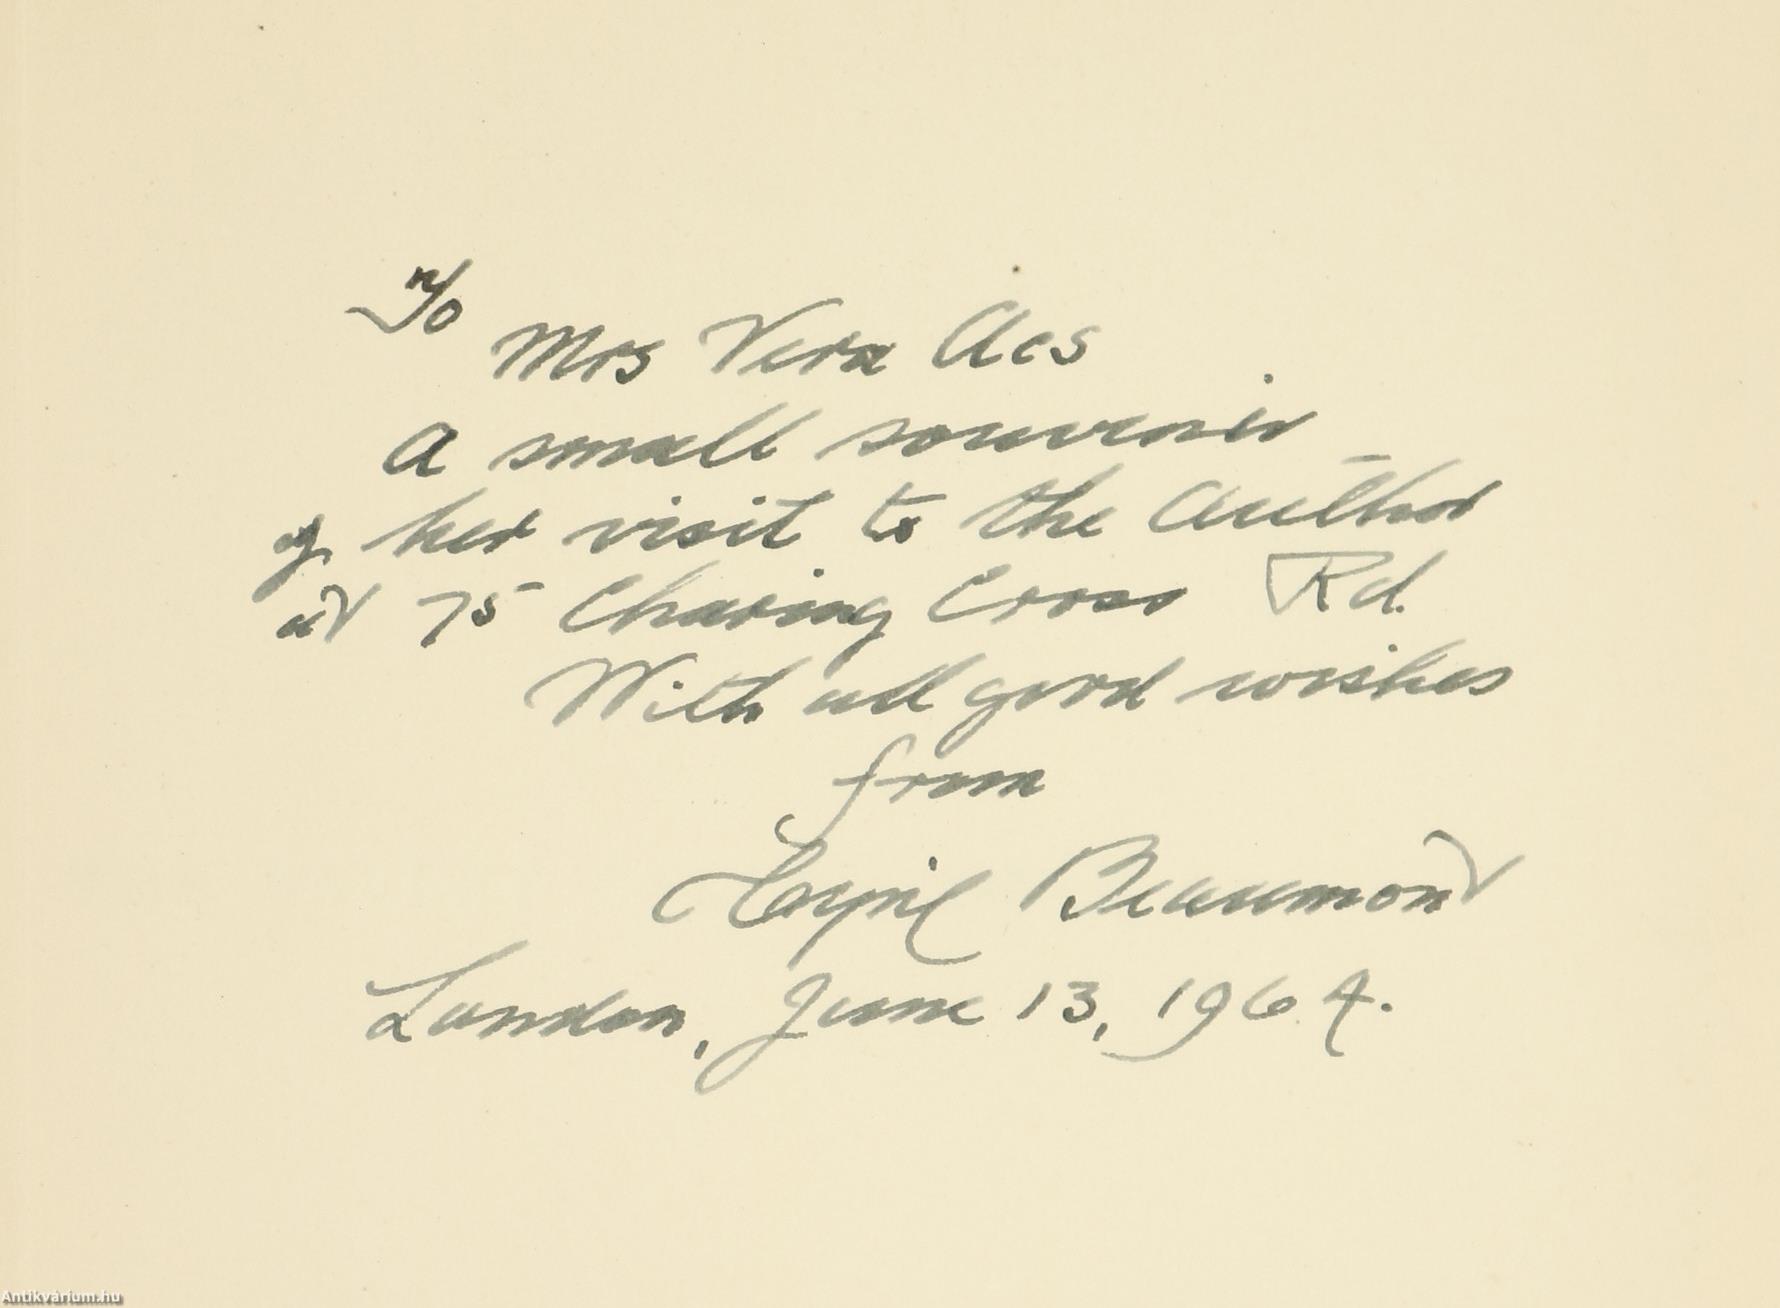 To
Mrs Vera Acs
A small souvenir
of her visit to the Author
at 75 Charing Cross Rd.
With all good wishes
from
Cyril Beaumont
London, June 13, 1964.
Antikvárium.hu